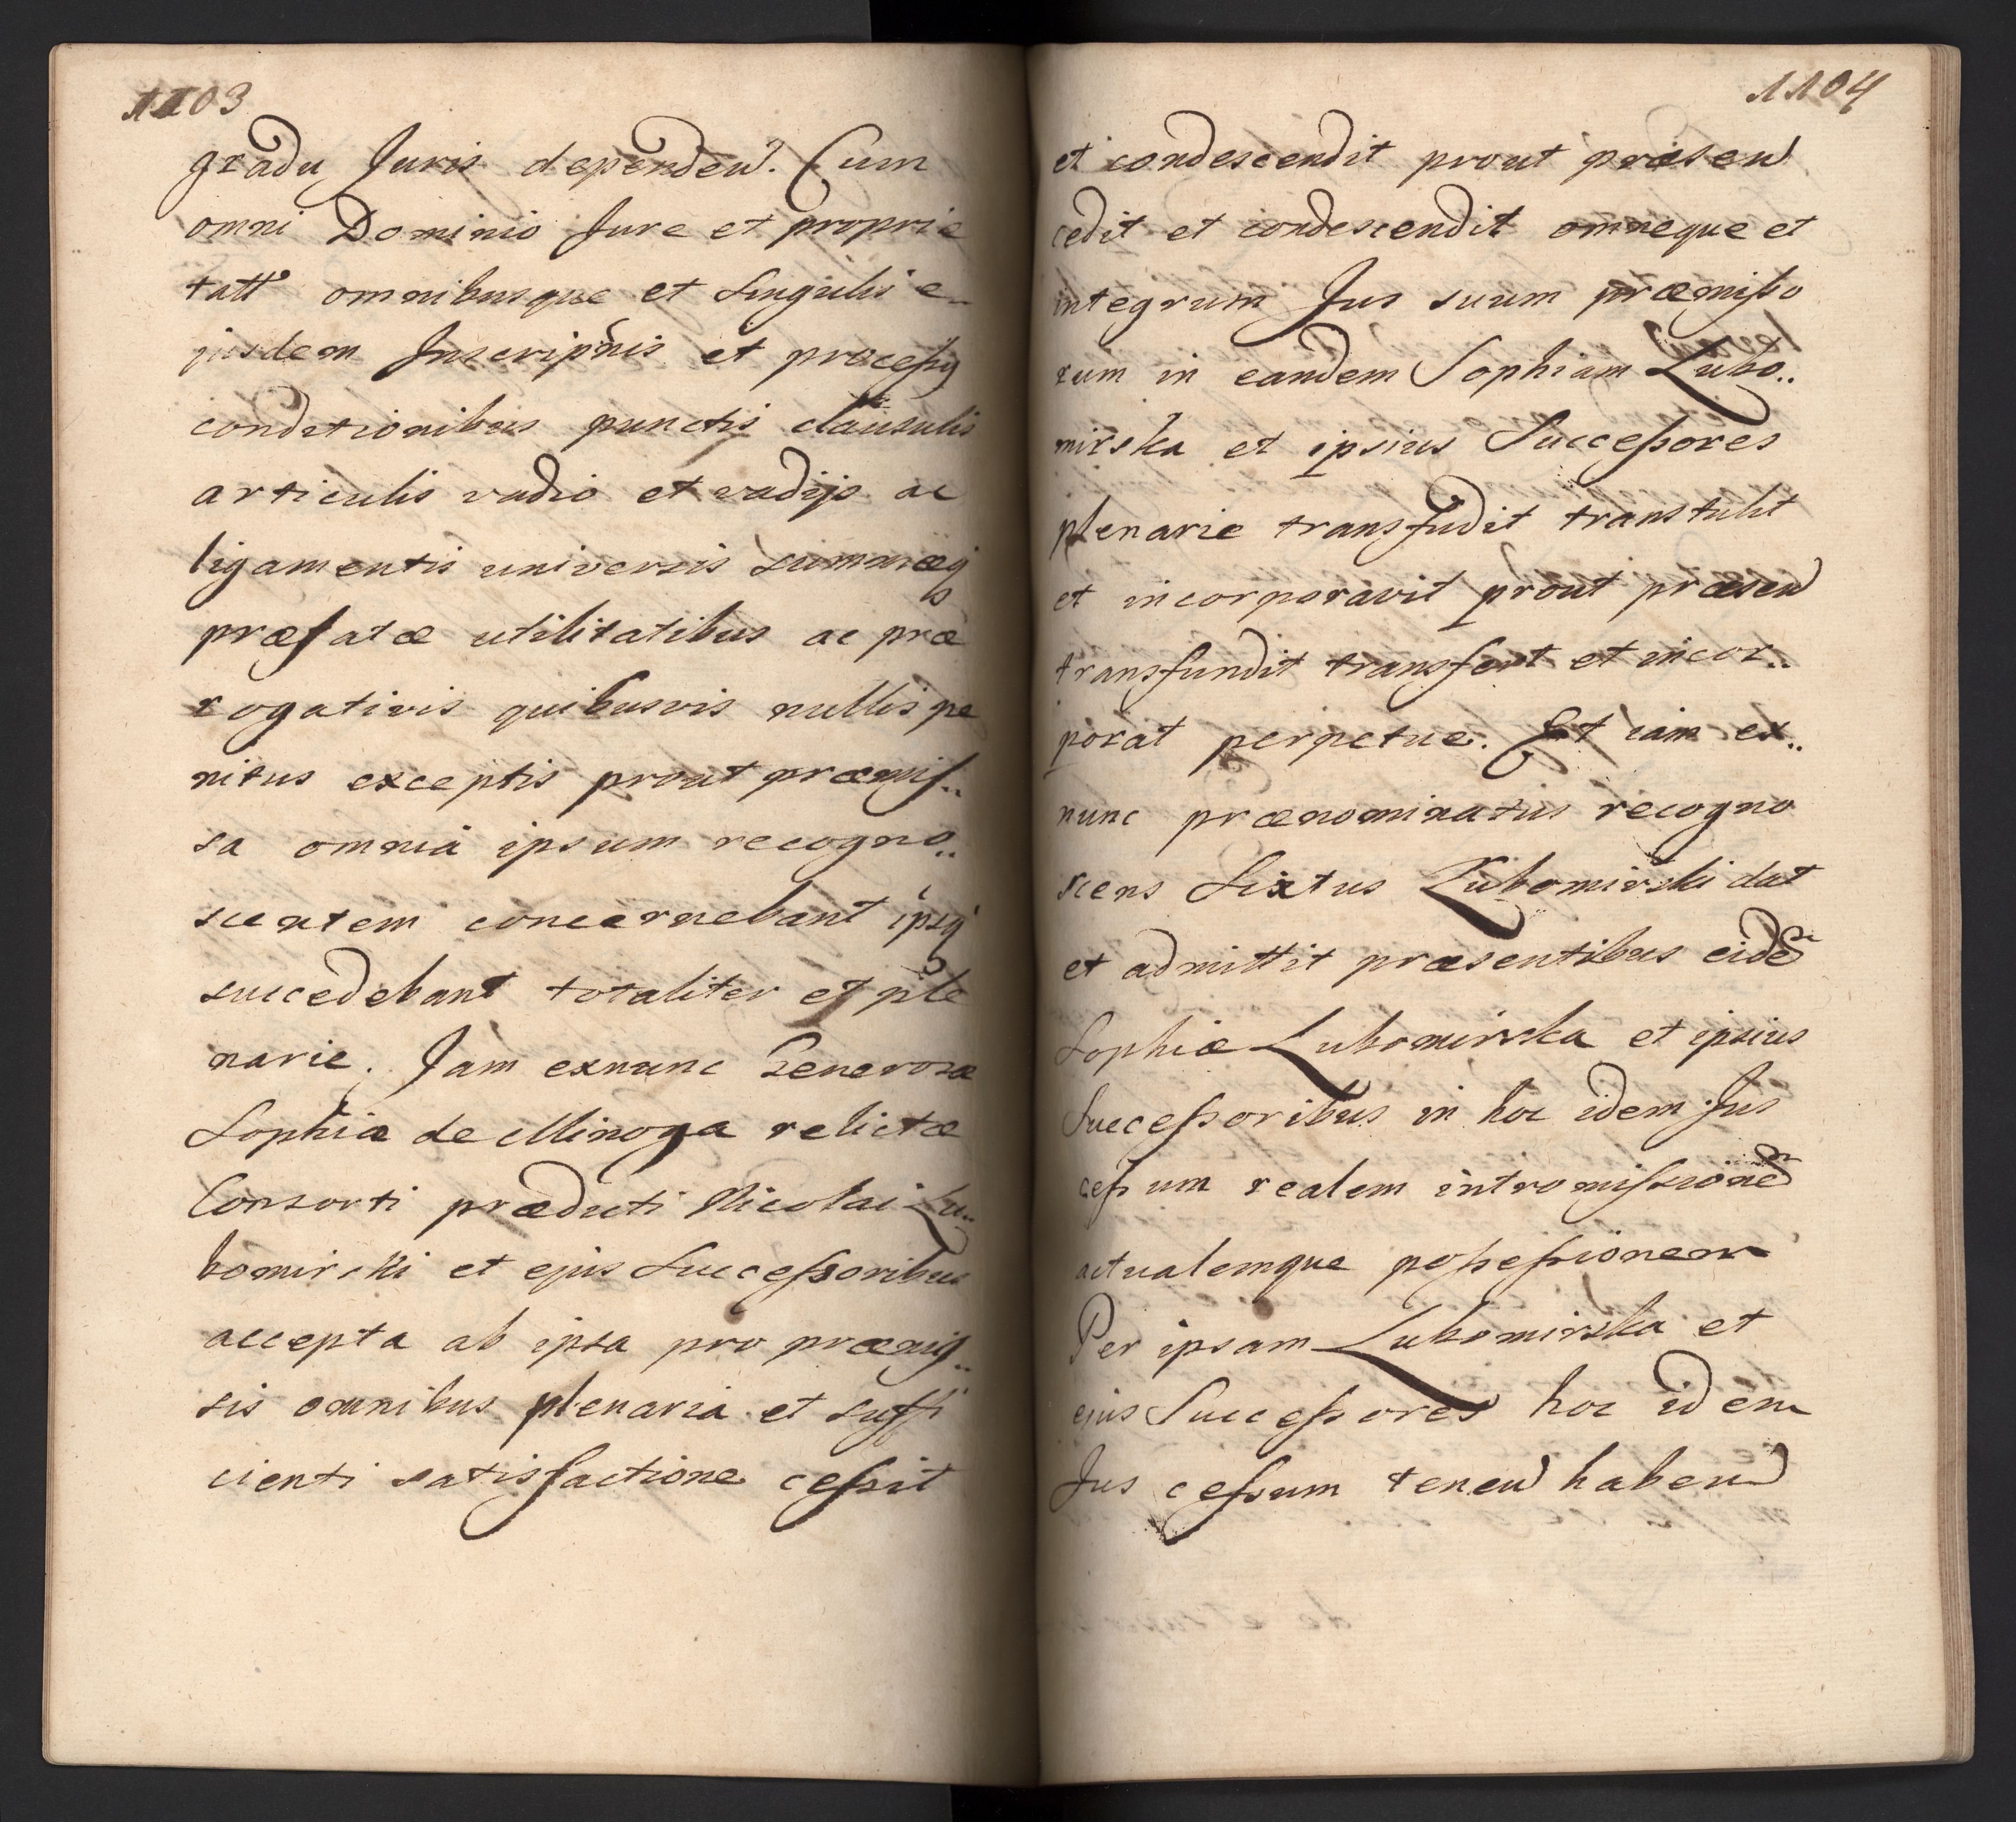 1103
gradu Juris dependen. Cum
omni Dominio Jure et proprie
tatt omnibusque et Singulis e-
jusdem Inscripnis et processq
conditionibus punctis clausulis
articulis vadio et vadijs ac
ligamentis universis summæq
præfatæ utilitatibus ac præ
rogativis quibusvis nullis pe
nitus exceptis prout præmis..
sa omnia ipsum recogno..
scentem concernebant ipsiq
succedebant totaliter et ple
narie. Jam exnunc Generosæ
Sophiæ de Minoga relictæ
Consorti præducti Nicolai Lu..
bomirski et ejus Successoribus
accepta ab ipsa pro præmis..
sis omnibus plenaria et suffi
cienti satisfactione cessit
1104
et condescendit prout præsen
cedit et condescendit omneque et
integrum Jus suum præmisso
rum in eandem Sophiam Lubo..
mirska et ipsius Successores
plenarie transfudit transtulit
et incorporavit prout præsen
transfundit transfert et incor..
porat perpetue. Et iam ex..
nunc prænominatus recogno
scens Sixtus Lubomirski dat
et admittit præsentibus eidem
Sophiæ Lubomirska et ipsius
Successoribus in hoc idem Jus
cessum realem intromissionem
actualemque possessionem
Per ipsam Lubomirska et
ejus Successores hoc idem
Jus cessum tenen haben